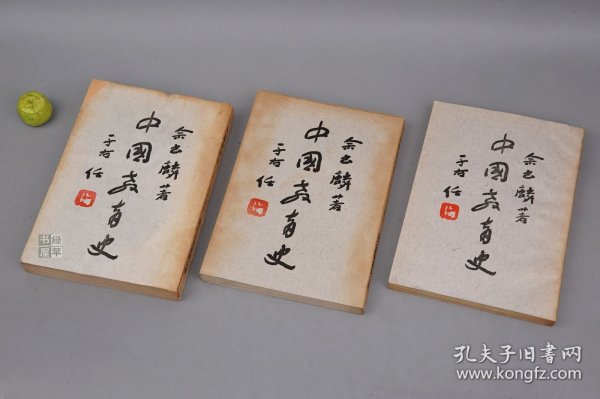 余書麟著
中國教育史
于右任
余書麟著
中國教育史
于右任
余書麟著
中國教育史
于右任
孔夫子旧书网
www.kongfz.com